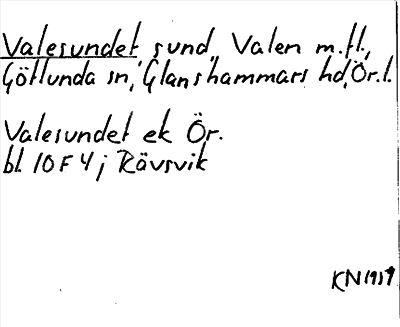 Valesundet, sund, Valen m.fl.,
Götlunda sn, Glanshammars hd, Ör. l.
Valesundet ek Ör.
bl. 10 F 4 j Rävsvik
KN 1959